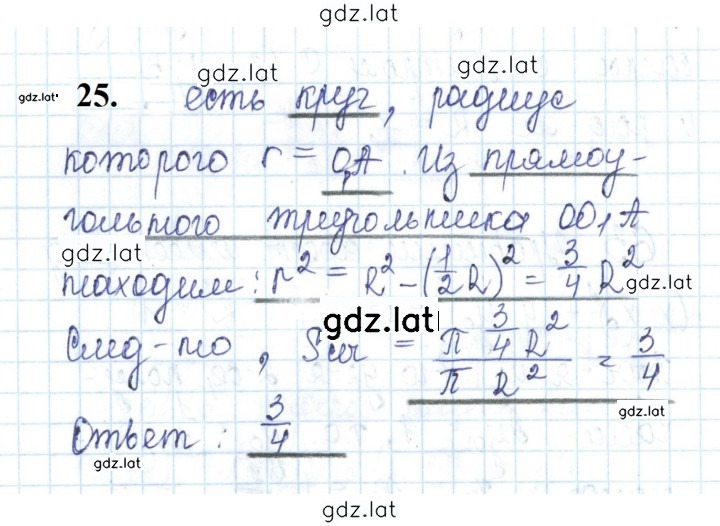 gdz.lat
gdz.lat
gdz.lat
gdz.lat
25. есть круг, радиус
которого r = O₁A. Из прямоу-
гольного треугольника OO₁A
gdz.lat
находим: r² = R² - (1/2 R)² = 3/4 R²
gdz.lat
gdz.lat
След-но, = π 3/4 R² / π R² = 3/4
gdz.lat
Ответ: 3/4
gdz.lat
gdz.lat